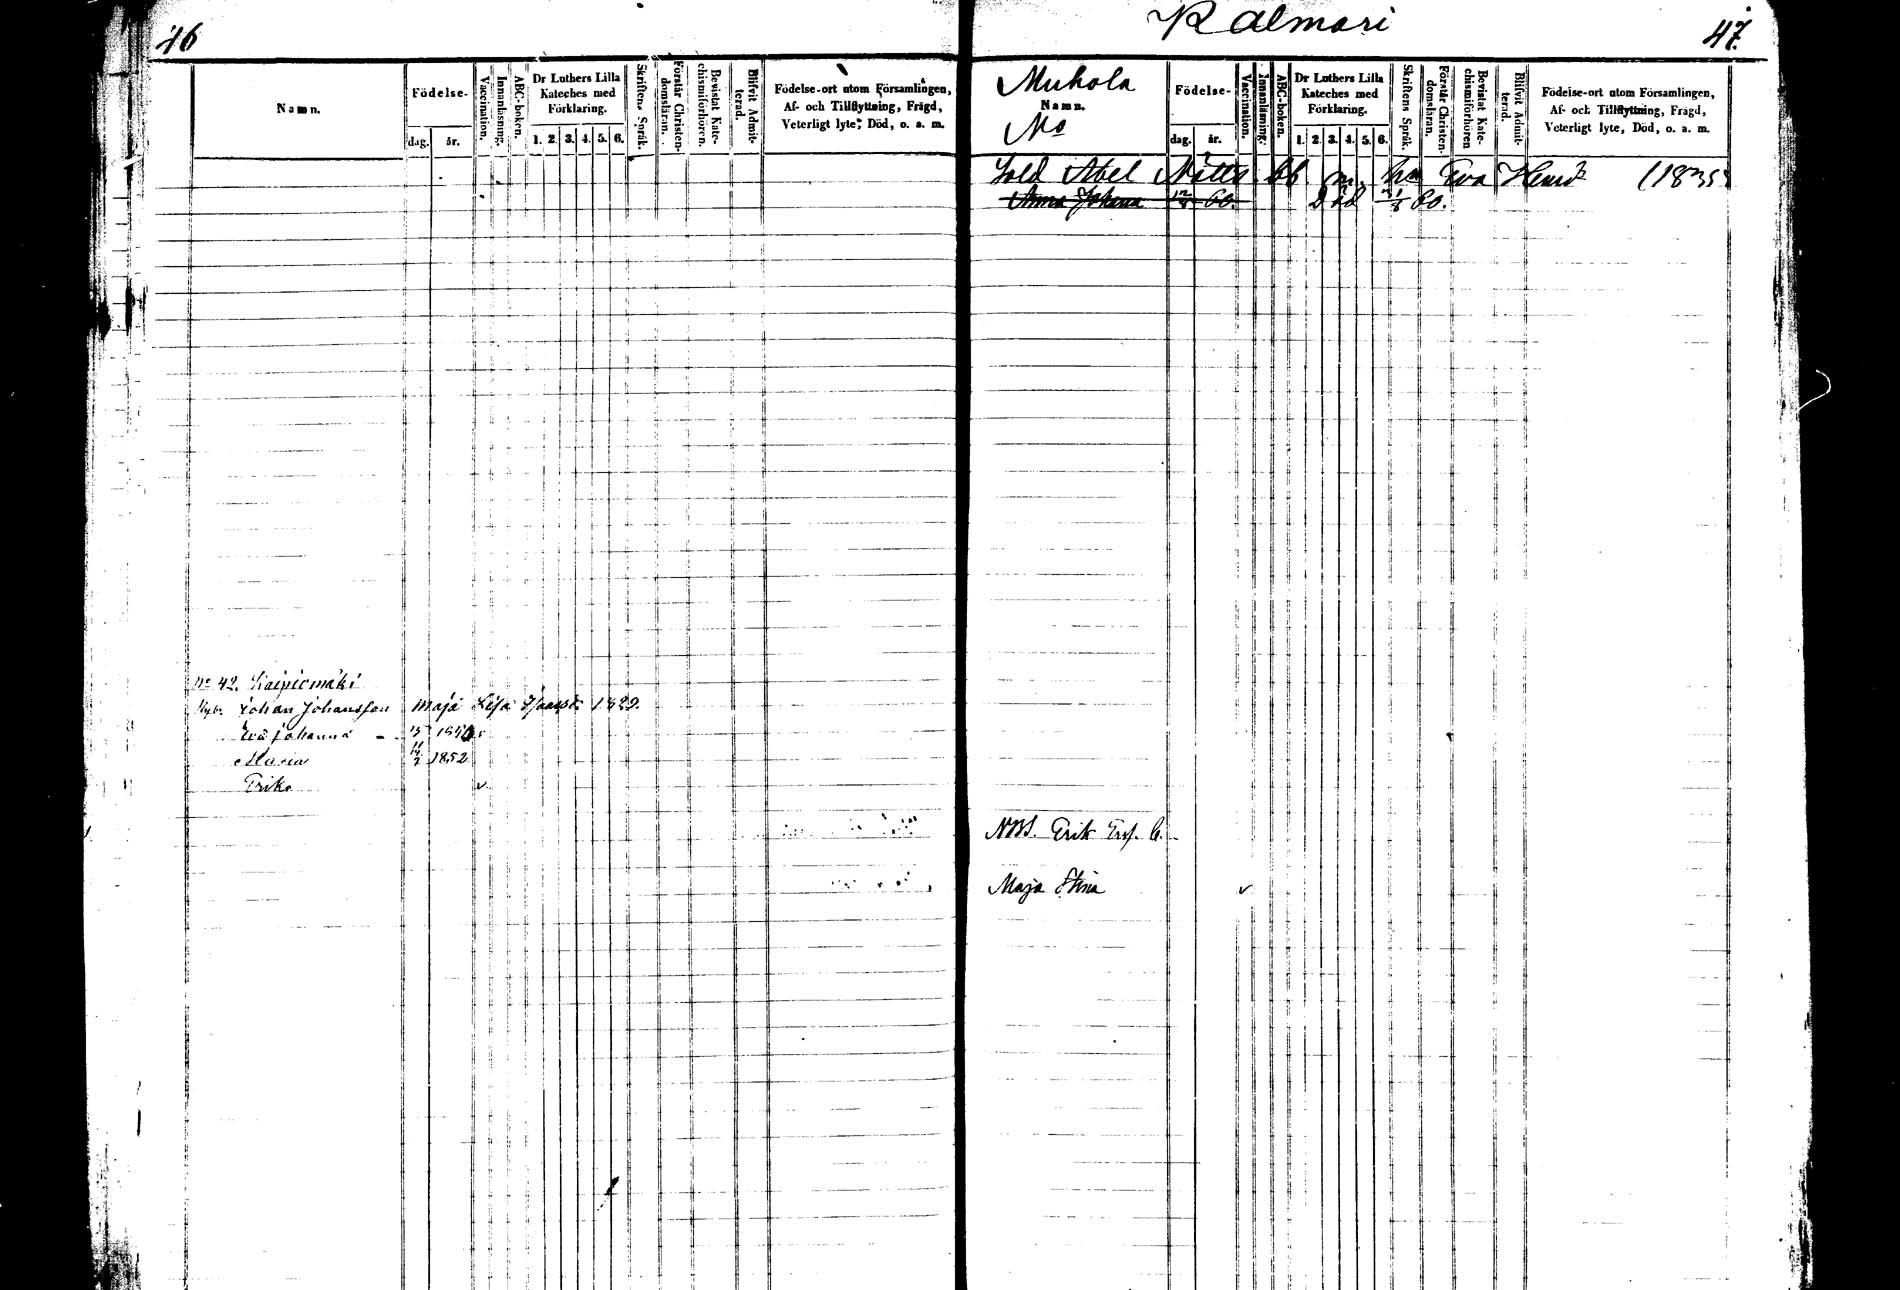 46
Namn.
Födelse-
dag.
år.
Vaccination.
Innanläsning.
ABC-boken.
Dr Luthers Lilla
Kateches med
Förklaring.
1. 2. 3. 4. 5. 6.
Skriftens Språk.
Förstår Christen-
domsläran.
Bevistat Kate-
chismiförhören.
Blifvit Admit-
terad.
Födelse-ort utom Församlingen,
Af- och Tillflyttning, Frägd,
Veterligt lyte, Död, o. a. m.
No 42.
Johan Johansson Maja Lisa 1829.
Eva Johanna
Maria 1852
Erika
Kalmari
47.
Muhola
Namn.
No
Födelse-
dag.
år.
Vaccination.
Innanläsning.
ABC-boken.
Dr Luthers Lilla
Kateches med
Förklaring.
1. 2. 3. 4. 5. 6.
Skriftens Språk.
Förstår Christen-
domsläran.
Bevistat Kate-
chismiförhören
Blifvit Admit-
terad.
Födelse-ort utom Församlingen,
Af- och Tillflyttning, Frägd,
Veterligt lyte, Död, o. a. m.
Sold Abel Eva
Anna Johana 60. Död 60.
Erik
Maja Stina